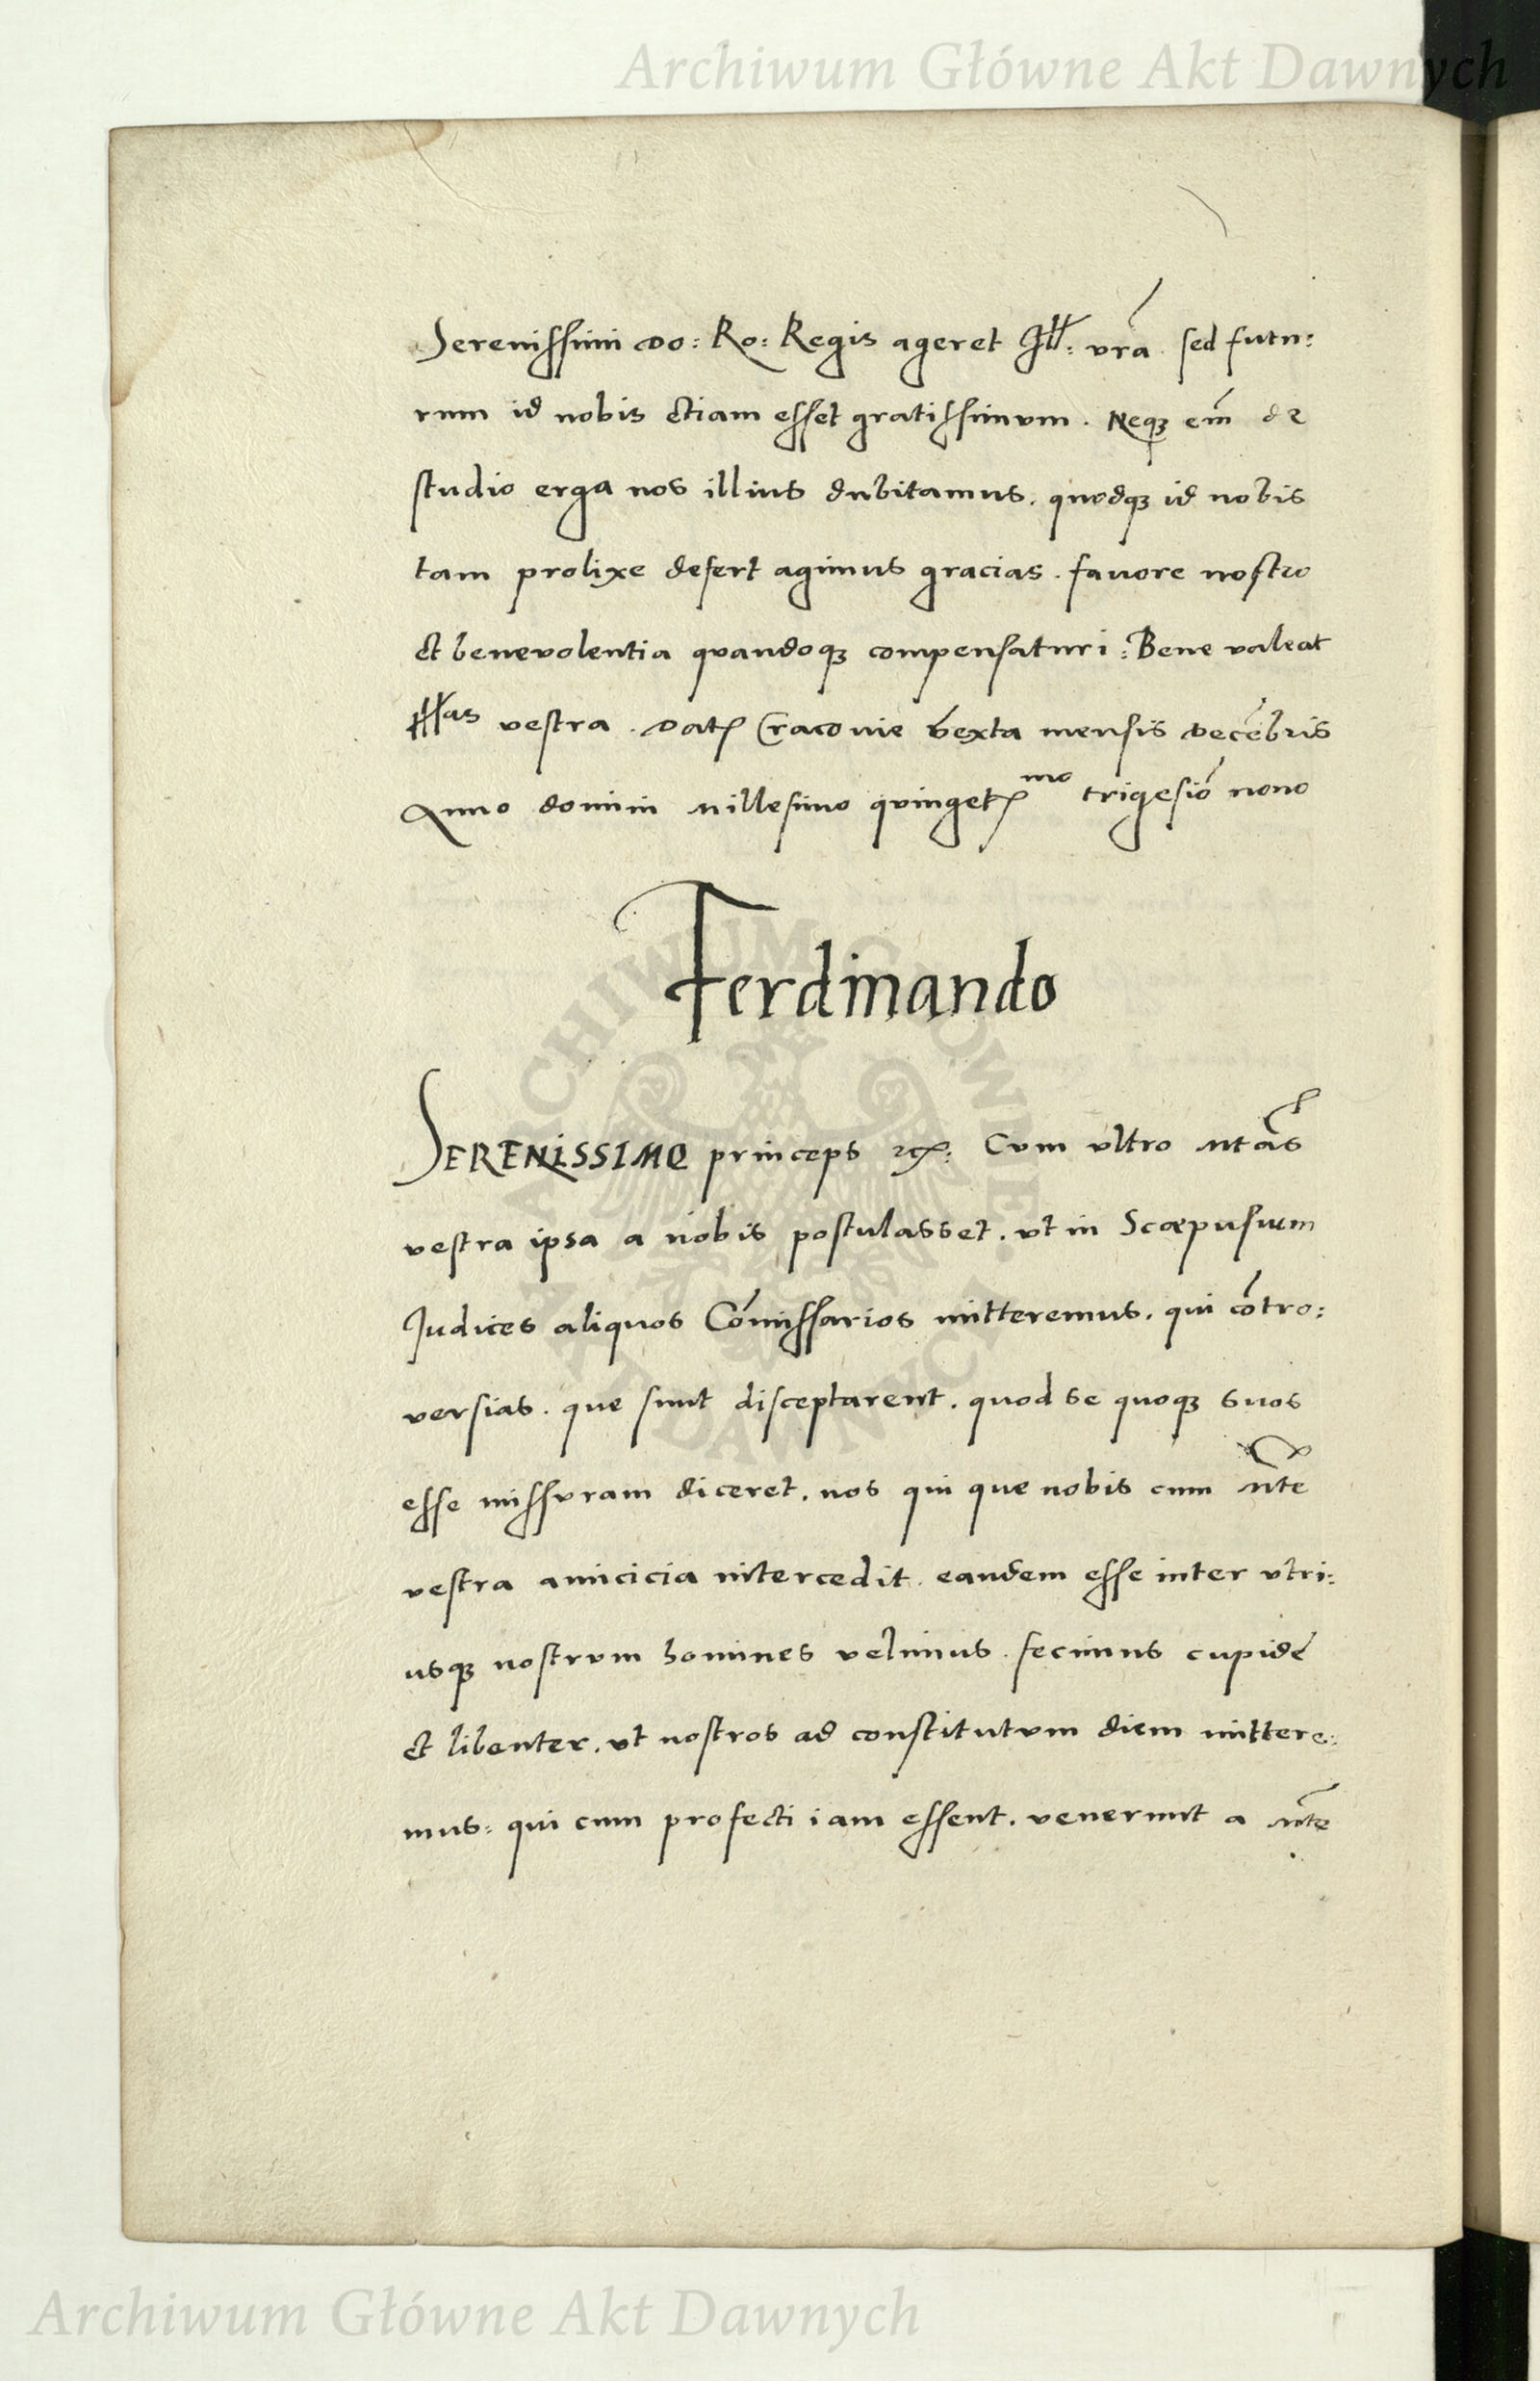 Archiwum Główne Akt Dawnych
Serenissimi Do: Ro: Regis ageret Ill: vrã sed futu:
rum id nobis etiam esset gratissimum. Neqꝫ em̃ de
studio erga nos illius dubitamus. quodqꝫ id nobis
tam prolixe defert agimus gracias. favore nostro
et benevolentia quandoqꝫ compensaturi: Bene valeat
Ill^as vestra. Datꝭ Cracovie sexta mensis Decẽbris
Anno domini Millesimo quingetꝭ^mo trigesiõ nono
Ferdinando
SERENISSIME princeps ⁊cꝭ: Cum ultro Mtãs
vestra ipsa a nobis postulasset. ut in Scæpusium
Iudices aliquos Cõmissarios mitteremus. qui cõtro:
versias. que sunt disceptarent. quod se quoqꝫ suos
esse missuram diceret. nos qui que nobis cum Mte
vestra amicicia intercedit. eandem esse inter utri:
usqꝫ nostrum homines velimus. fecimus cupidé
et libenter. ut nostros ad constitutum diem mittere:
mus: qui cum profecti iam essent. venerunt a Mte
Archiwum Główne Akt Dawnych